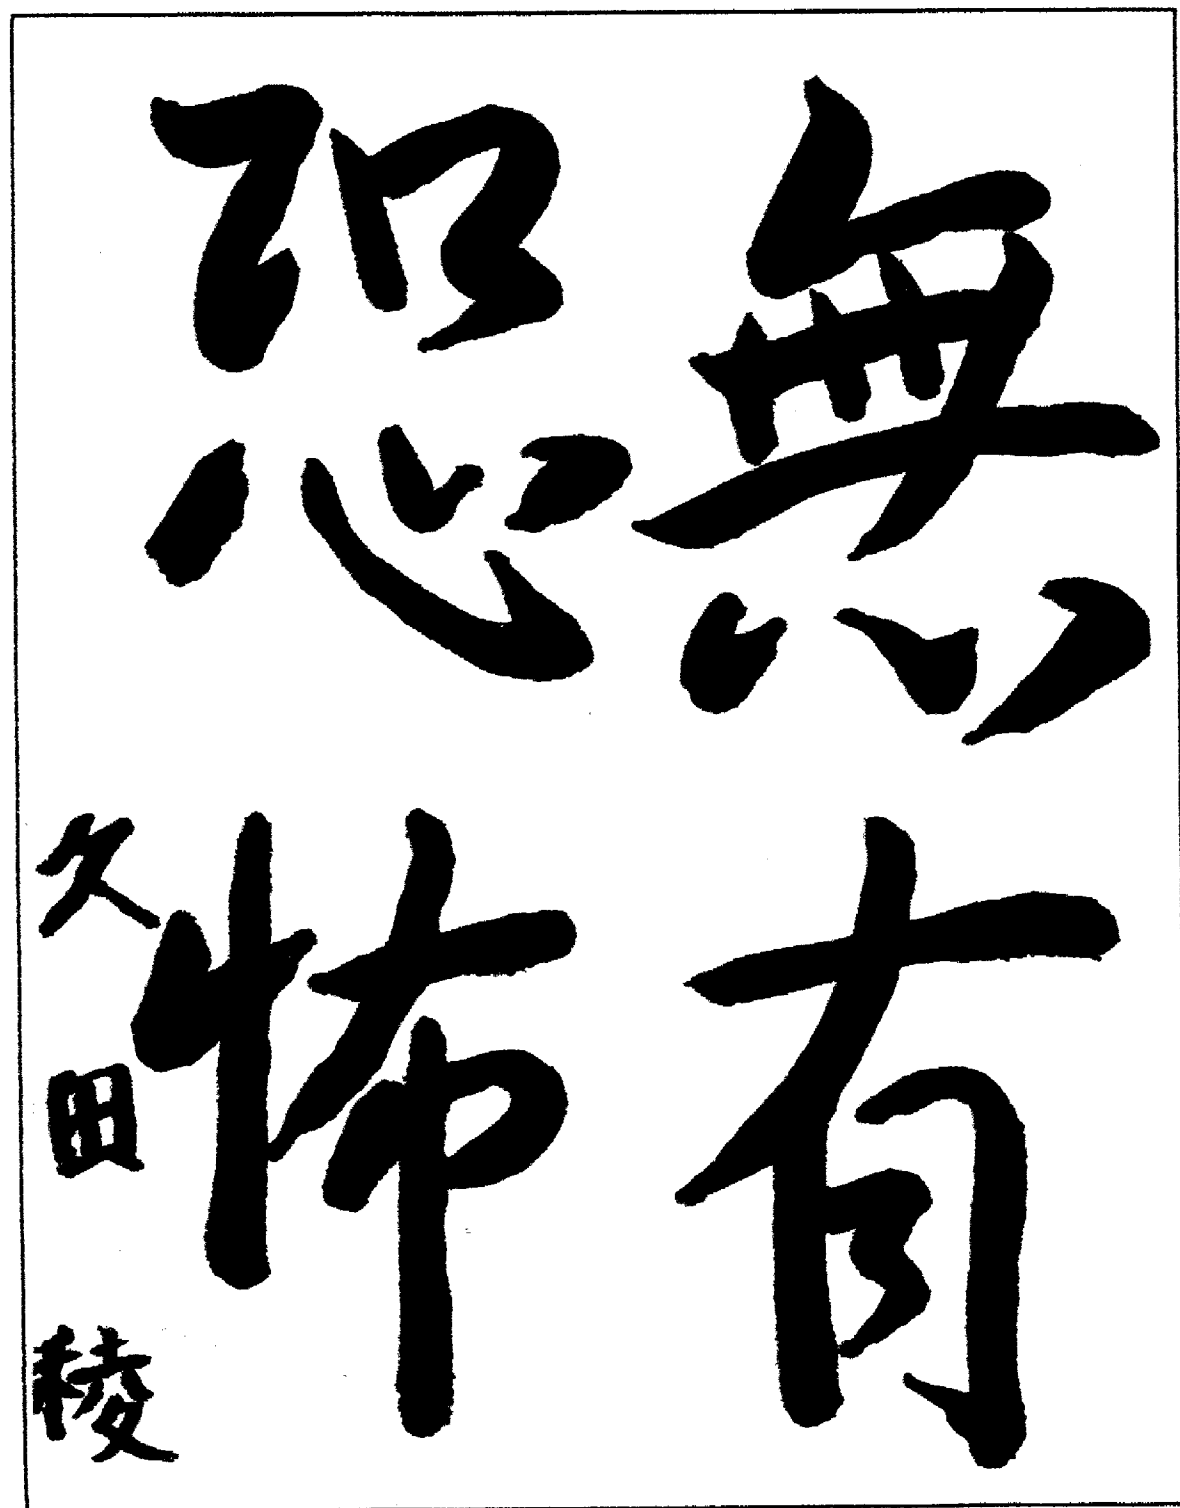 無有
恐怖
久田稜